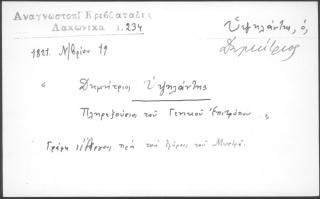 Αναγνωστοπ Κρεββαταδες
Λακωνικα 1.234
Ὑψηλάντης, ὁ
Δημήτριος
1821 Ν/βρίου 19
"Δημήτριος Ὑψηλάντης
Πληρεξούσιος τοῦ Γενικοῦ Ἐπιτρόπου
Γράμμ. πρὸ τοῦ τοῦ Μυστρᾶ